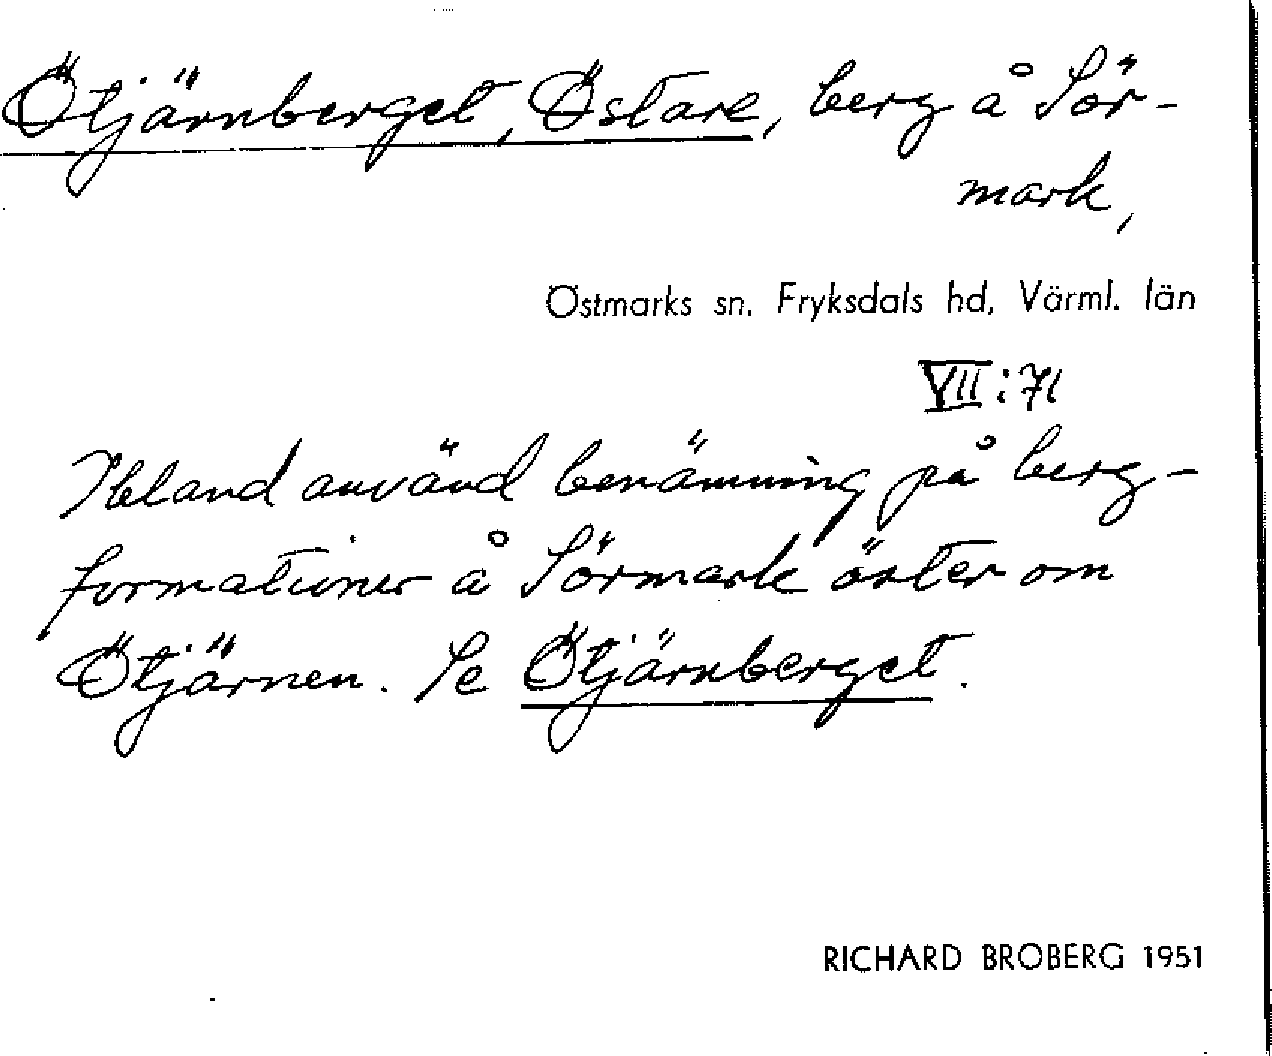 Ötjärnberget, Östare, berg å Sör-
mark,
Östmarks sn. Fryksdals hd, Värml. län
VII:71
Ibland använd benämning på berg-
formationer å Sörmark öster om
Ötjärnen. Se Ötjärnberget.
RICHARD BROBERG 1951